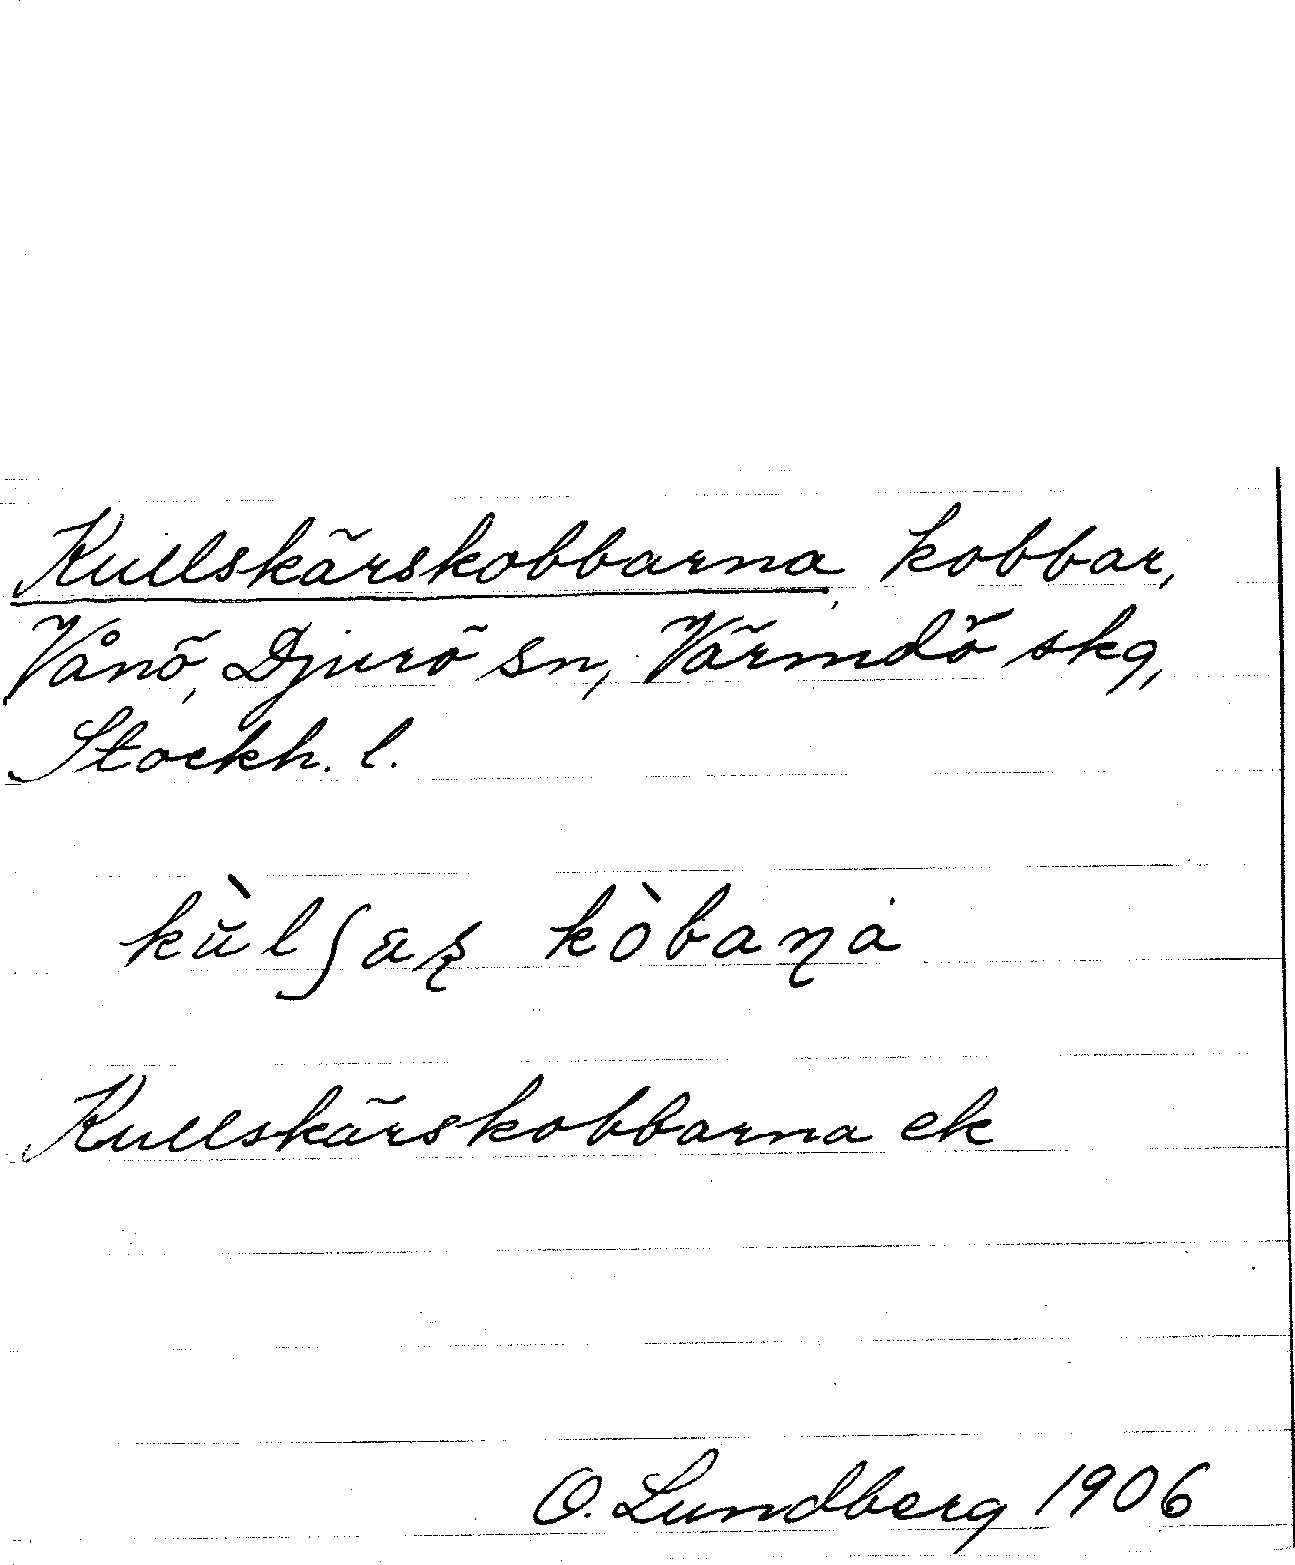 Kullskärskobbarna, kobbar,
Vånö, Djurö sn, Värmdö skg,
Stockh. l.
kùlʃaʂ kòbaɳa
Kullskärskobbarna ek
O. Lundberg 1906